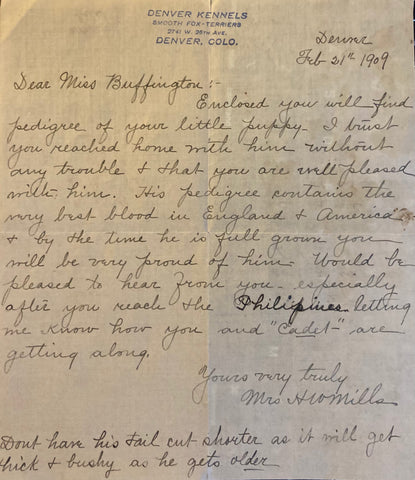 DENVER KENNELS
SMOOTH FOX-TERRIERS
2741 W. 35TH AVE.
DENVER, COLO.
Denver
Feb 21st 1909
Dear Miss Buffington:-
Enclosed you will find
pedigree of your little puppy. I trust
you reached home with him without
any trouble & that you are well pleased
with him. His pedigree contains the
very best blood in England & America
& by the time he is full grown you
will be very proud of him. Would be
pleased to hear from you especially
after you reach the Philipines letting
me know how you and "Cadet" are
getting along.
Yours very truly
Mrs H W Mills
Dont have his tail cut shorter as it will get
thick & bushy as he gets older